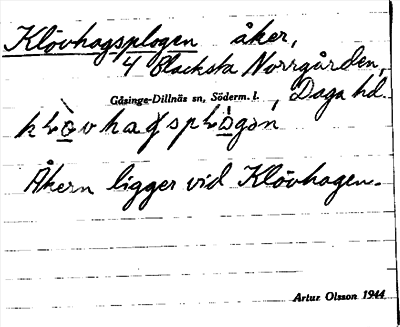 Klövhagsplogen åker,
4 Blacksta Norrgården,
Gåsinge-Dillnäs sn, Söderm. l. , Daga hd.
Åkern ligger vid Klövhagen.
Artur Olsson 1944